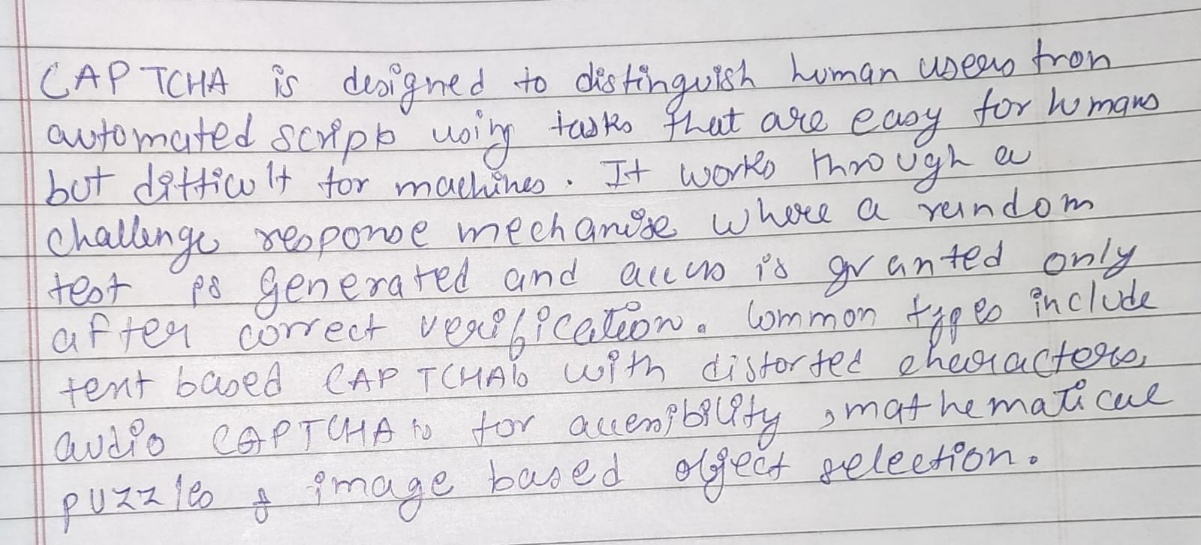 CAPTCHA is designed to distinguish human users from
automated scripts using tasks that are easy for humans
but difficult for machines. It works through a
challenge response mechanise where a random
test is generated and access is granted only
after correct verification. Common types include
text based CAPTCHAs with distorted characters,
audio CAPTCHAs for accessibility, mathematical
puzzles & image based object selection.